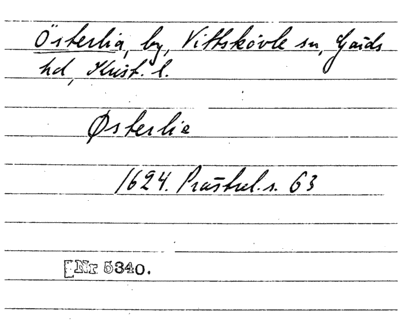 Österlia, by, Vittskövle sn, Gärds
hd, Krist. l.
Østerlia
1624. Prästrel. s. 63
[Nr 5340.